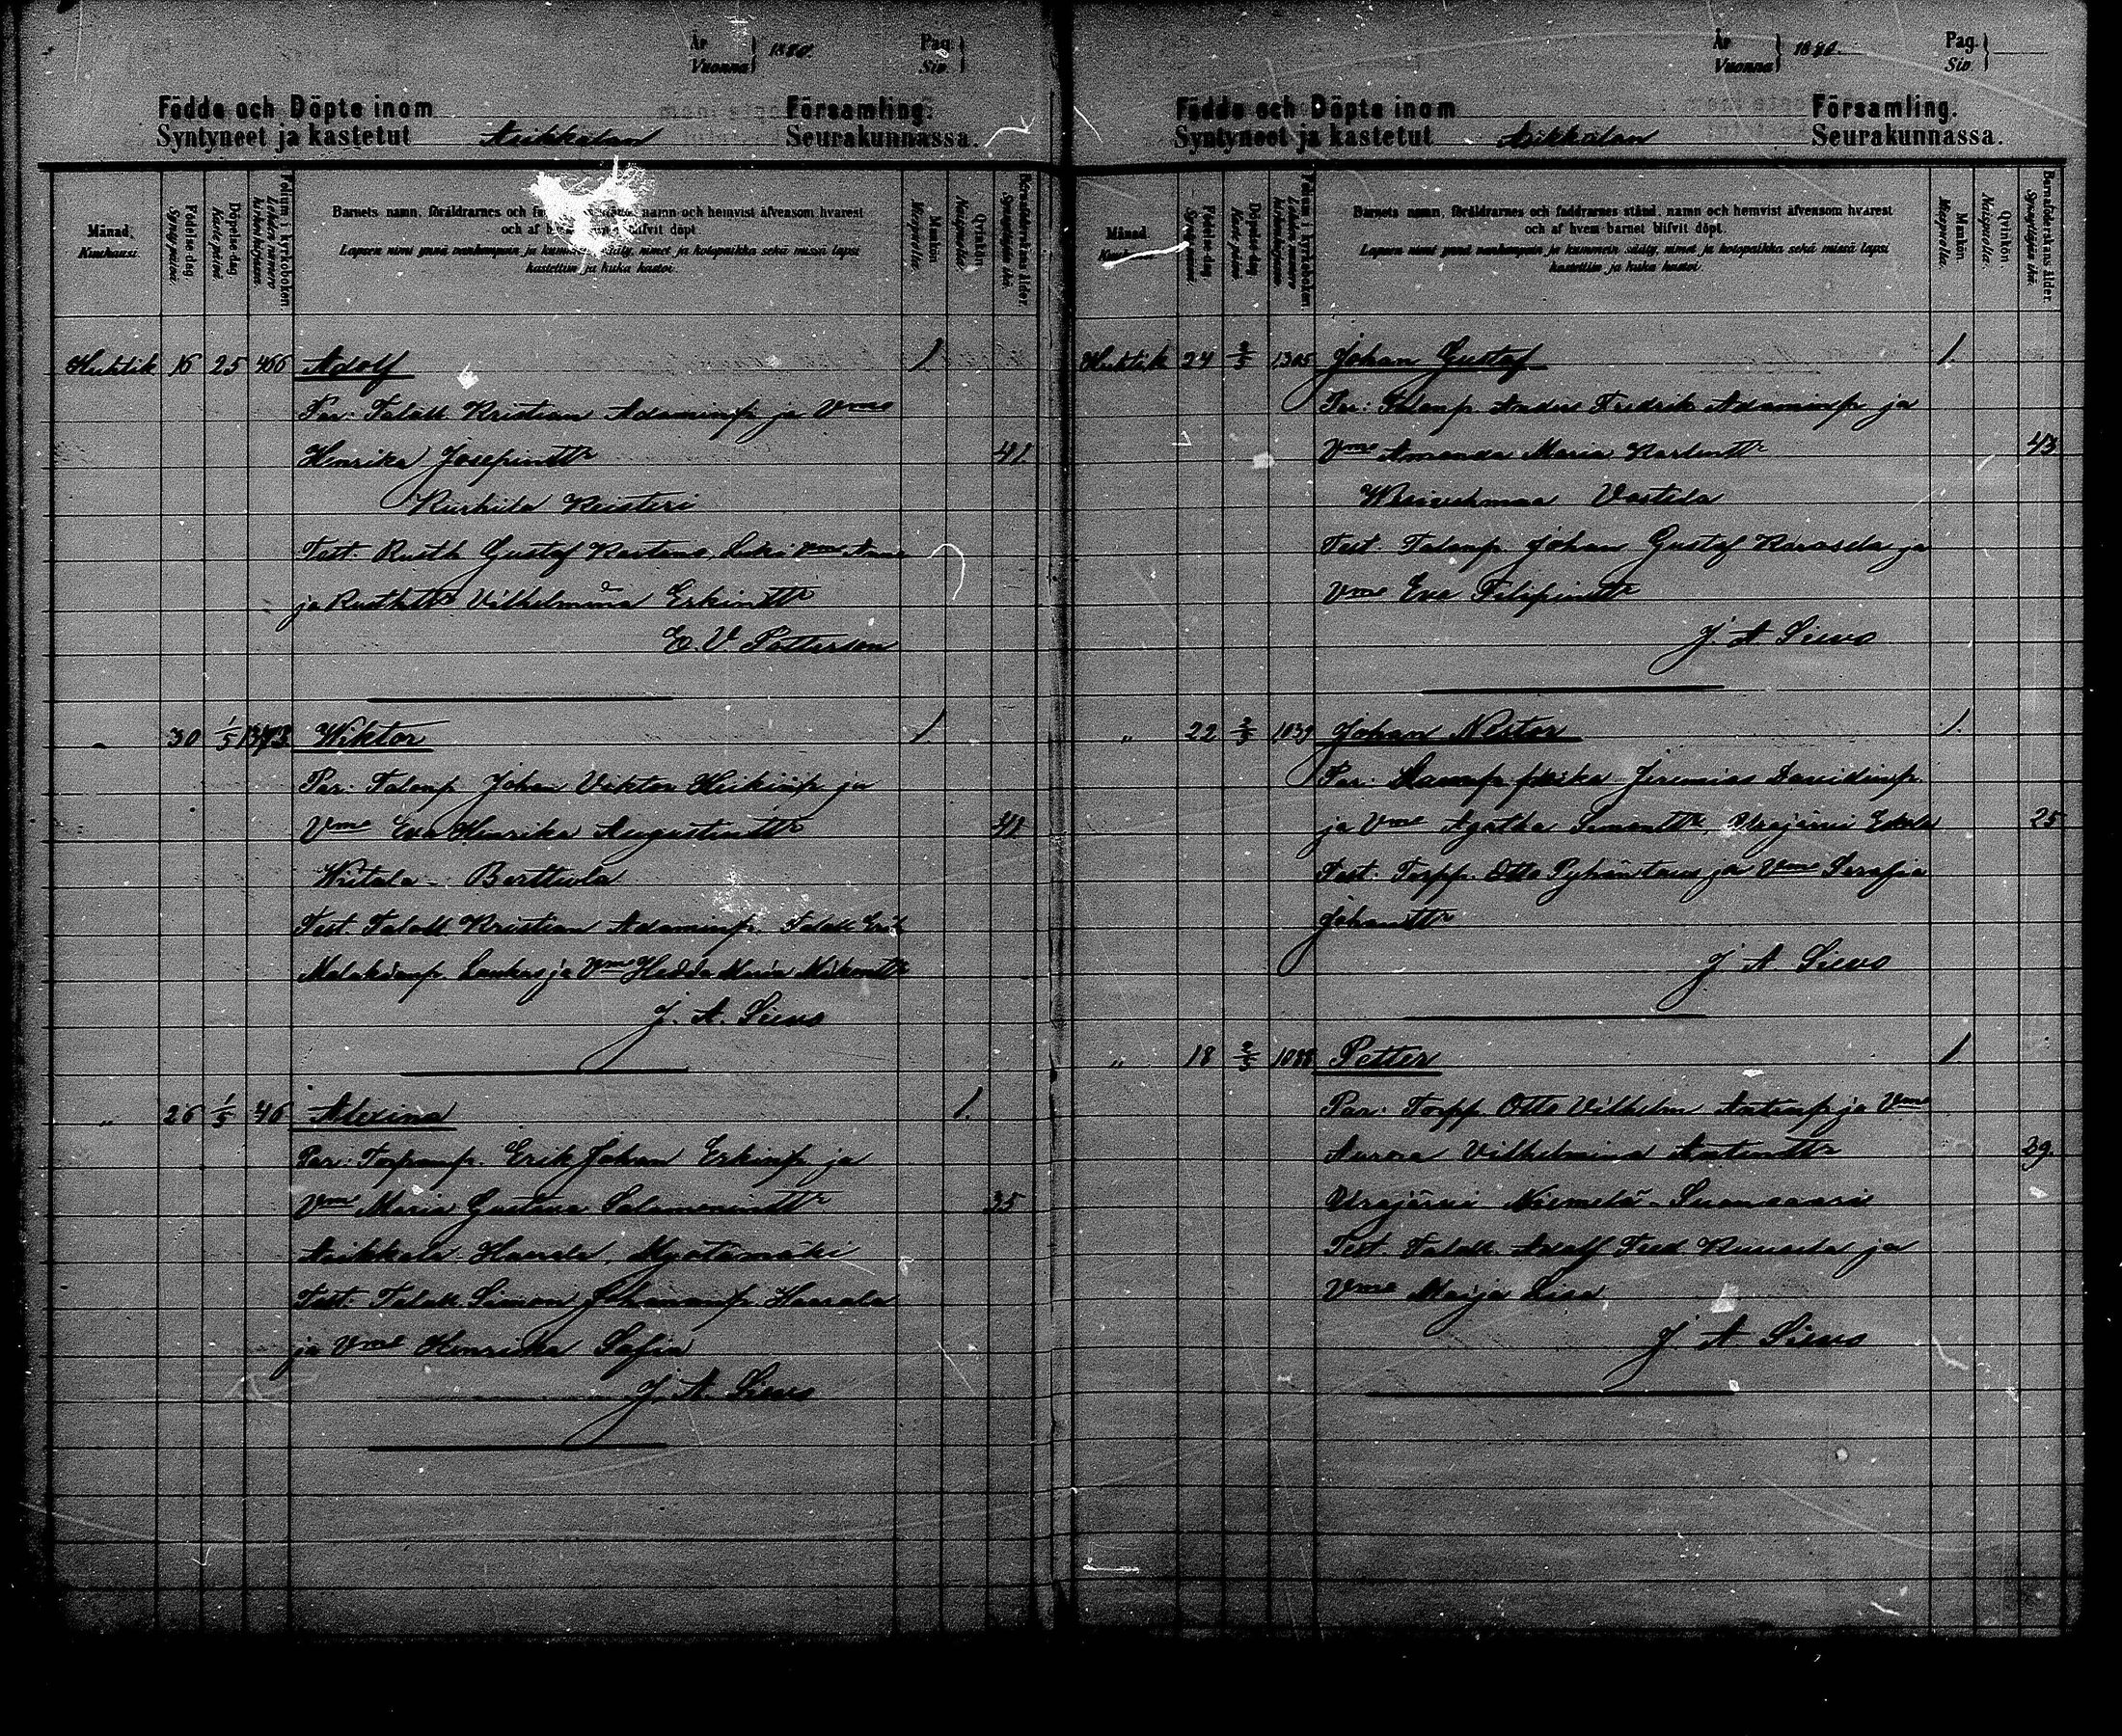 År
Vuonna } 1880.
Pag.
Siv. }
Födde och Döpte inom Församling.
Syntyneet ja kastetut Asikkalan Seurakunnassa.
Månad.
Kuukausi.
Födelse-dag.
Syntymäpäivä.
Döpelse-dag.
Kaste-päivä.
Folium i kyrkoboken.
Barnets namn, föräldrarnes och namn och hemvist äfvensom hvarest
och af blifvit döpt.
Lapsen nimi ynnä vanhempain ja sääty, nimet ja kotopaikka sekä missä lapsi
kastettiin ja kuka kastoi.
Mankön.
Miespuolia.
Qvinkön.
Naispuolia.
Barnaföderskans ålder.
Synnyttäjän ikä.
Huhtik 16 25 466 Adolf 1.
Par: Talall Kristian Adaminp ja Vmo
Henrika Josepintr 41.
Kurhila Keisteri
Test. Rusth Gustaf Vmo
ja Vilhelmina Erkintr
E. V. Petterson
" 30 1/5 Wiktor 1.
Par: Talonp Johan Viktor Heikinp ja
Vmo Eva Henrika Augustintr 41
Wiitala - Berttula
Test Talall Kristian Adaminp. Talall Erik
ja Vmo Hedda Maria
J. A. Siewo
" 26 1/5 46 Alexina 1.
Par: Erik Johan Erkinp ja
Vmo Maria Gustava Salomonintr 35
Asikkala Haarala,
Test: Talall. Simon Johananp Haarala
ja Vmo Henrika Sofia
J. A. Siewo
År
Vuonna } 1880.
Pag.
Siv. }
Födde och Döpte inom Församling.
Syntyneet ja kastetut Asikkalan Seurakunnassa.
Månad.
Födelse-dag.
Döpelse-dag.
Folium i kyrkoboken.
Barnets namn, föräldrarnes och faddrarnes stånd, namn och hemvist äfvensom hvarest
och af hvem barnet blifvit döpt.
Lapsen nimi ynnä vanhempain ja kummein sääty, nimet ja kotopaikka sekä missä lapsi
kastettiin ja kuka kastoi.
Mankön.
Miespuolia.
Qvinkön.
Naispuolia.
Barnaföderskans ålder.
Synnyttäjän ikä.
Huhtik 24 2/5 1305 Johan Gustaf 1.
Par: Talonp. Anders Fredrik Adaminp ja
Vmo Amanda Maria Karlintr 43
Wesivehmaa
Test. Talonp. Johan Gustaf ja
Vmo Eva Filipintr
J. A. Siewo
" 22 2/5 1039 Johan Nestor 1.
Par: Jeremias Davidinp.
ja Vmo Agatha Simontr, Urajärvi 25
Test: Torpp. Otto ja Vmo Serafia
Johantr
J. A. Siewo
" 18 2/5 1088 Petter 1
Par: Torpp. Otto Vilhelm Antinp ja Vmo
Aurora Vilhelmina Antintr 39.
Urajärvi Niemelä - Suomsaari
Test. Talall. Adolf Fred. ja
Vmo Maija Lisa
J. A. Siewo